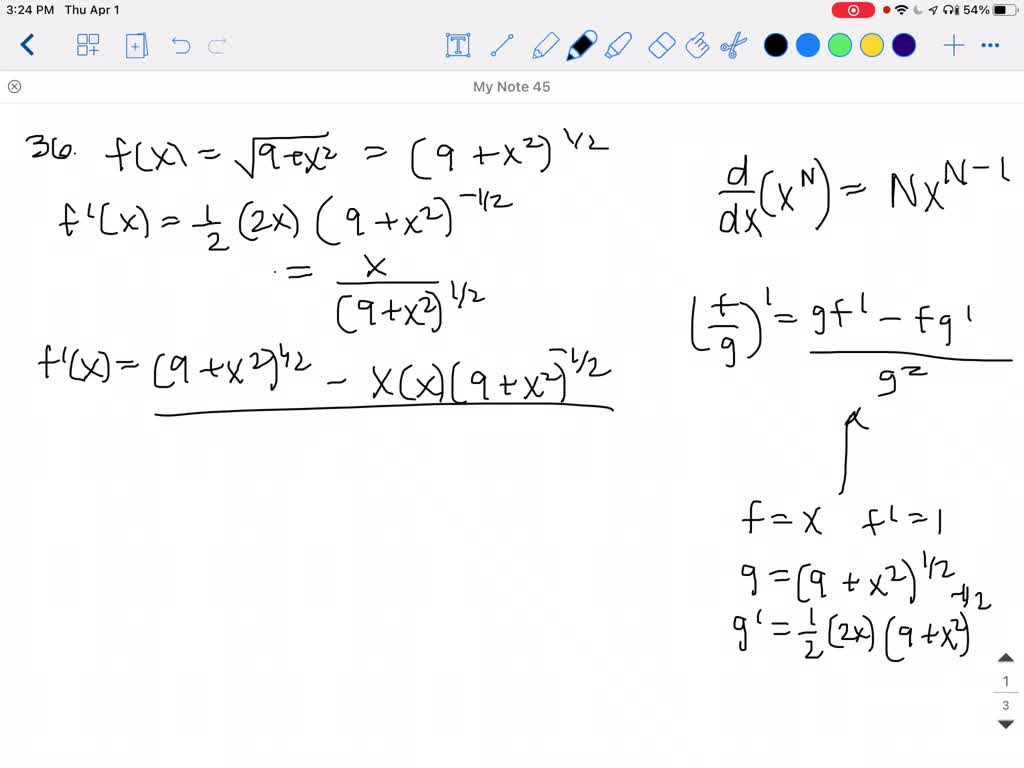 3:24 PM Thu Apr 1
54%
My Note 45
36. f(x) = √9+x² = (9 + x²)^1/2
f'(x) = 1/2 (2x) (9 + x²)^-1/2
= x/(9+x²)^1/2
f'(x) = (9 + x²)^1/2 - x(x)(9 + x²)^-1/2
d/dx (x^N) = Nx^N-1
(f/g)' = gf' - fg'
g²
f = x f' = 1
g = (9 + x²)^1/2
g' = 1/2 (2x) (9 + x²)^-1/2
1
3